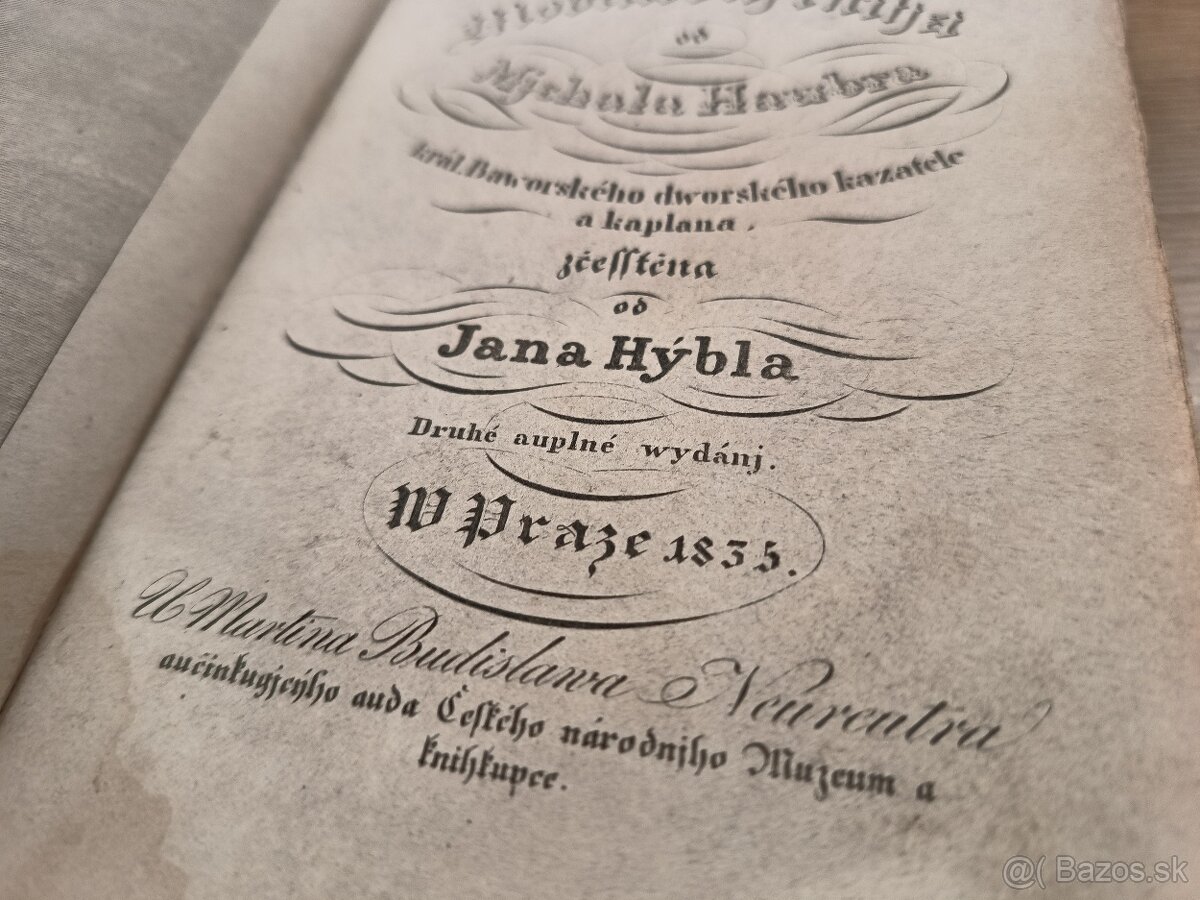 od
Mjchala Haubra
král. Baworského dworského kazatele
a kaplana.
zčeſſtěna
od
Jana Hýbla
Druhé auplné wydánj.
W Praze 1835.
U Martina Budislawa Neureutra
aučinkugjcyho auda Českého národnjho Muzeum a
knihkupce.
@( Bazos.sk